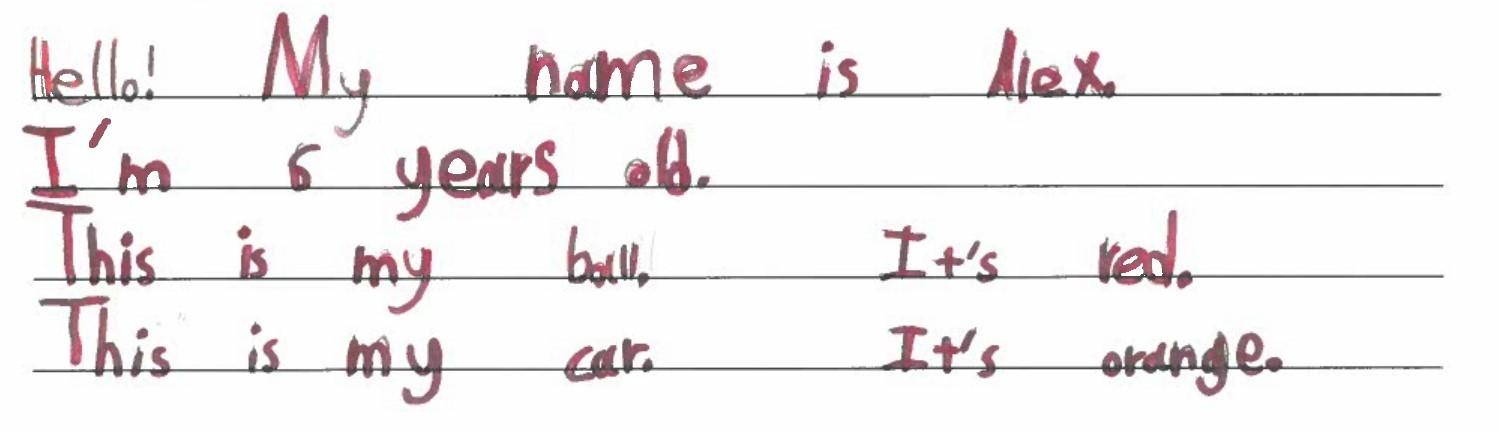 Hello! My name is Alex.
I'm 6 years old.
This is my ball. It's red.
This is my car. It's orange.